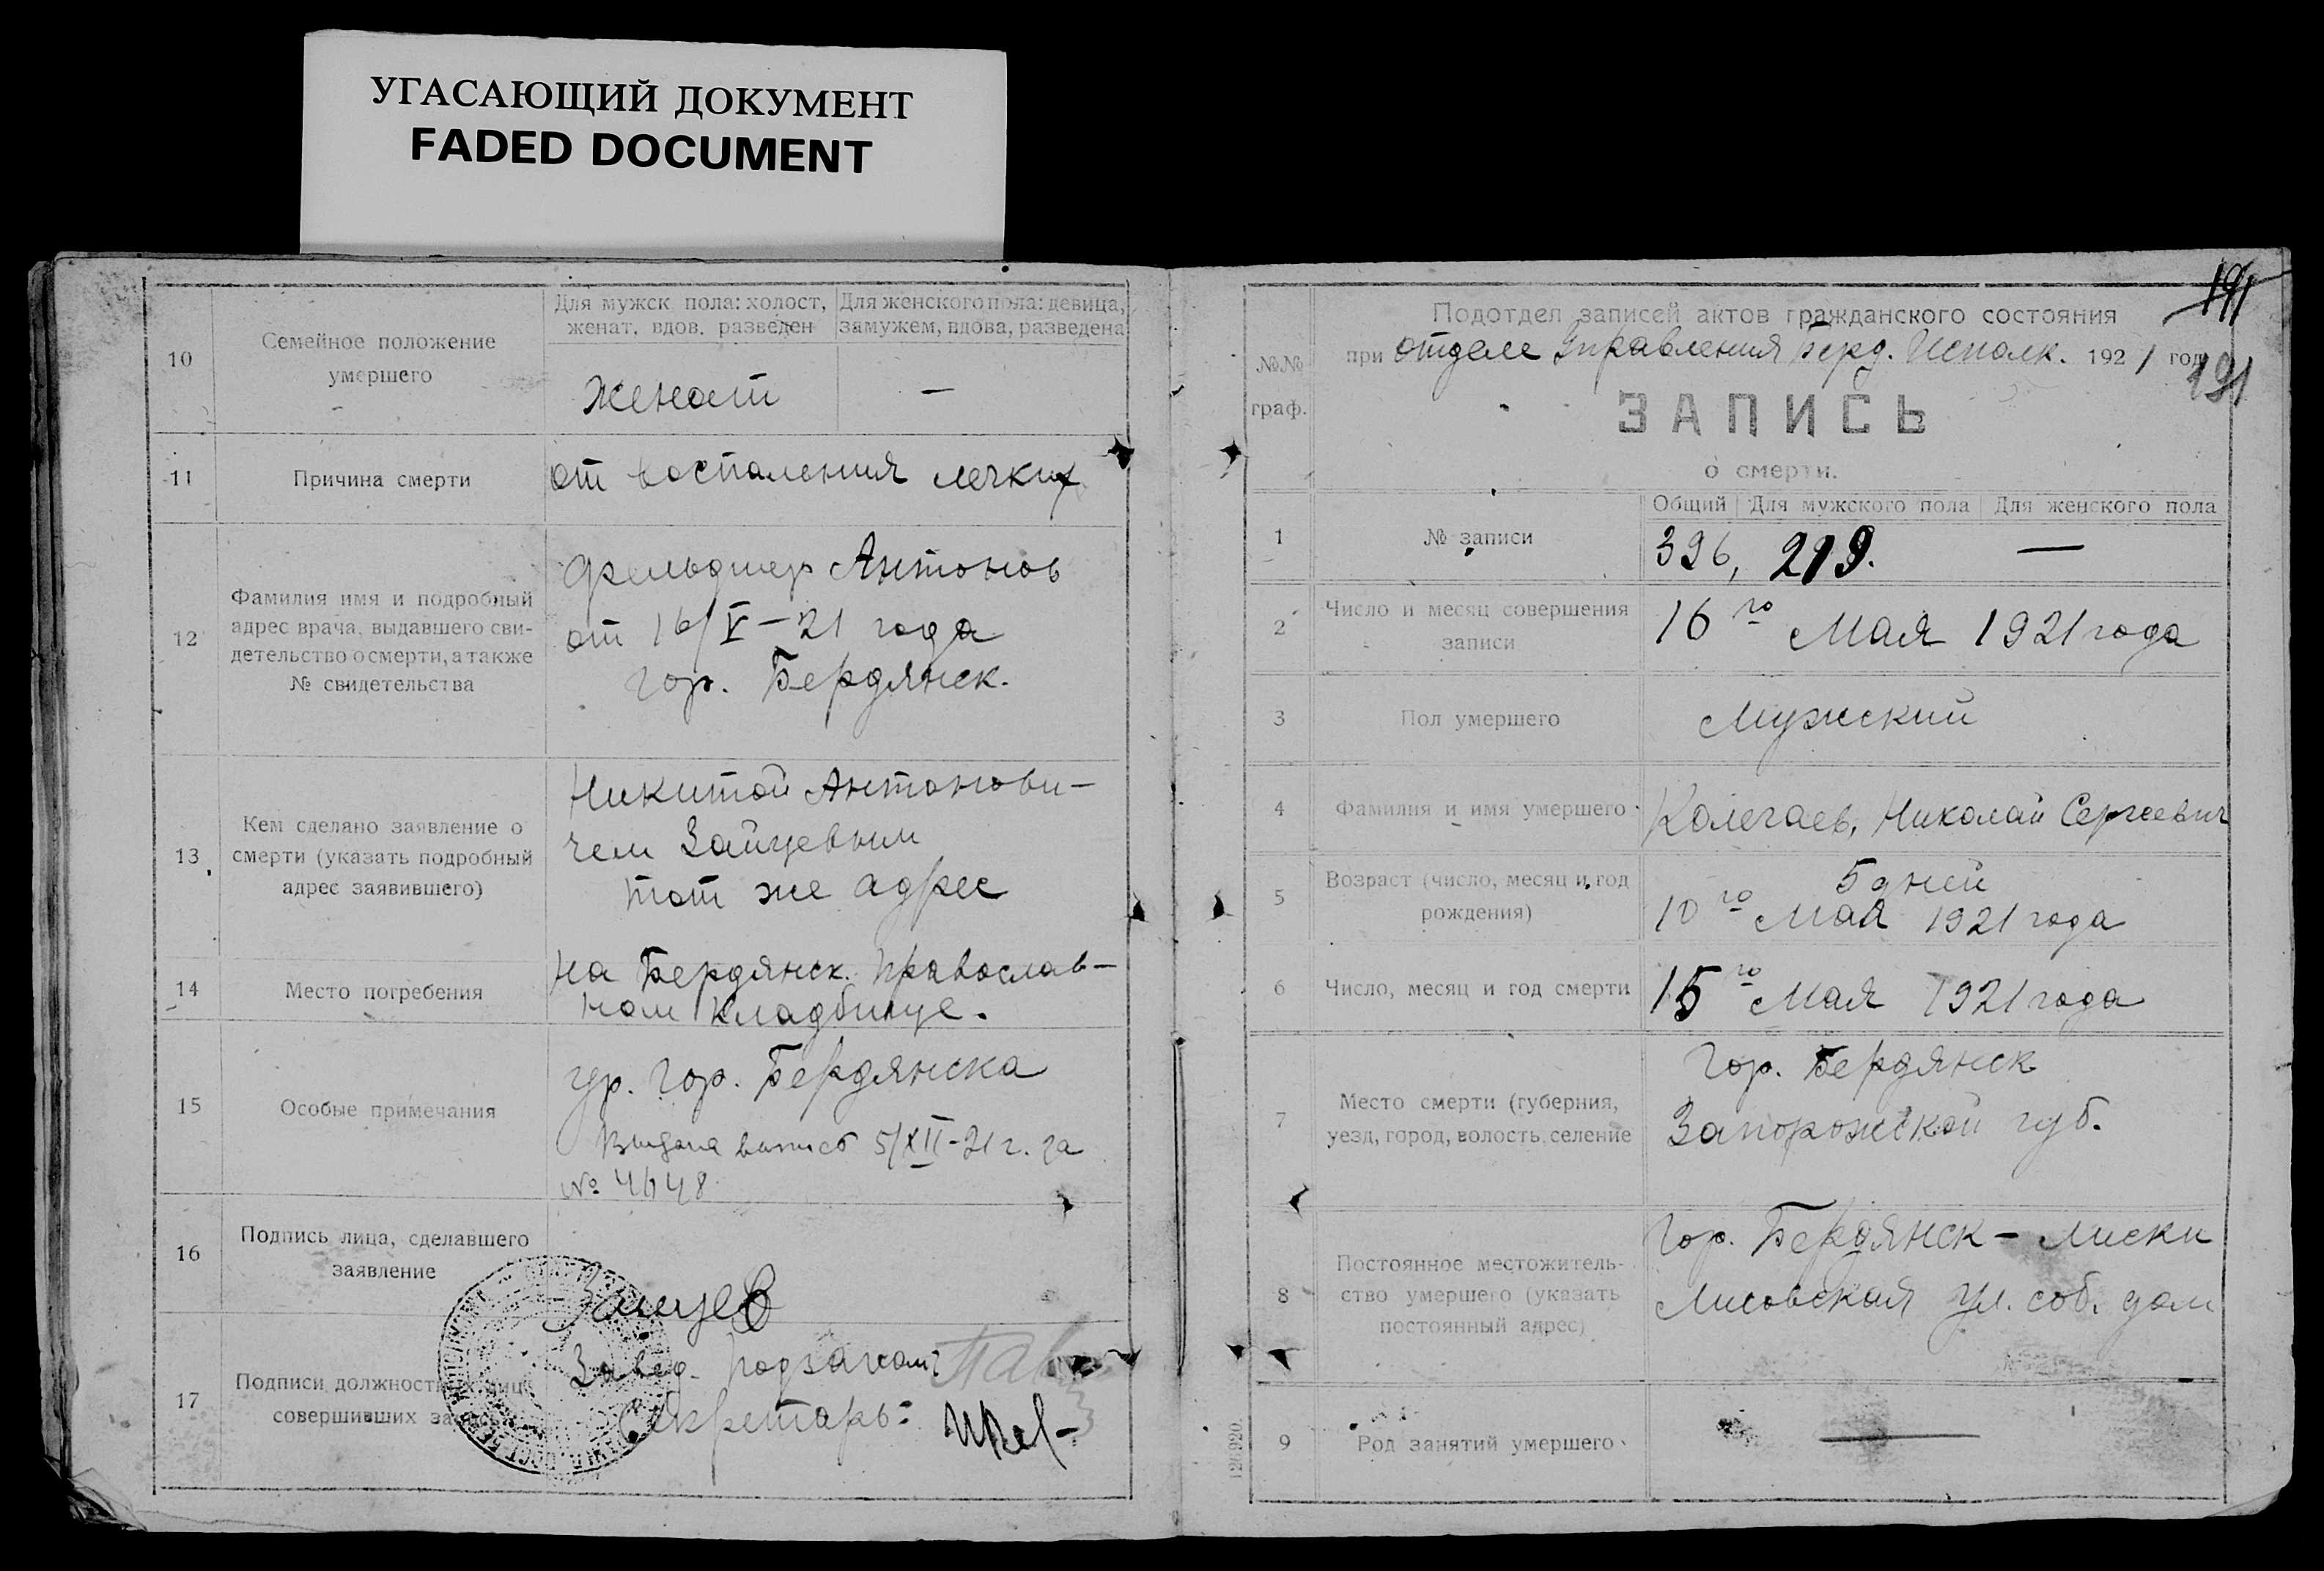 УГАСАЮЩИЙ ДОКУМЕНТ
FADED DOCUMENT
10
Семейное положение
умершего
Для мужск. пола: холост,
женат, вдов, разведен
Для женского пола: девица,
замужем, вдова, разведена
Женат
—
11
Причина смерти
от воспаления легких
12
Фамилия имя и подробный
адрес врача, выдавшего сви-
детельство о смерти, а также
№ свидетельства
Фельдшер Антонов
от 16/V-21 года
гор. Бердянск.
13
Кем сделано заявление о
смерти (указать подробный
адрес заявившего)
Никитой Антонови-
чем Зайцевым
тот же адрес
14
Место погребения
на Бердянск. Православ-
ном кладбище.
15
Особые примечания
ур. гор. Бердянска
Выдана выпись 5/XII-21 г. за
№ 4648
16
Подпись лица, сделавшего
заявление
Зайцев
17
Подписи должностных лиц
совершивших
Завед.
Секретарь:
191
191
№№
граф.
Подотдел записей актов гражданского состояния
при отделе Управления Берд. Исполк. 1921 год
ЗАПИСЬ
о смерти.
1
№ записи
Общий
Для мужского пола
Для женского пола
396, 219. —
2
Число и месяц совершения
записи
16го Мая 1921 года
3
Пол умершего
Мужский
4
Фамилия и имя умершего
Колегаев, Николай Сергеевич
5
Возраст (число, месяц и год
рождения)
5 дней
10го Мая 1921 года
6
Число, месяц и год смерти
15го Мая 1921 года
7
Место смерти (губерния,
уезд, город, волость, селение
Гор. Бердянск
Запорожской губ.
8
Постоянное местожитель-
ство умершего (указать
постоянный адрес)
Гор. Бердянск - Лиски
Лисовская ул. соб. дом
9
Род занятий умершего
—